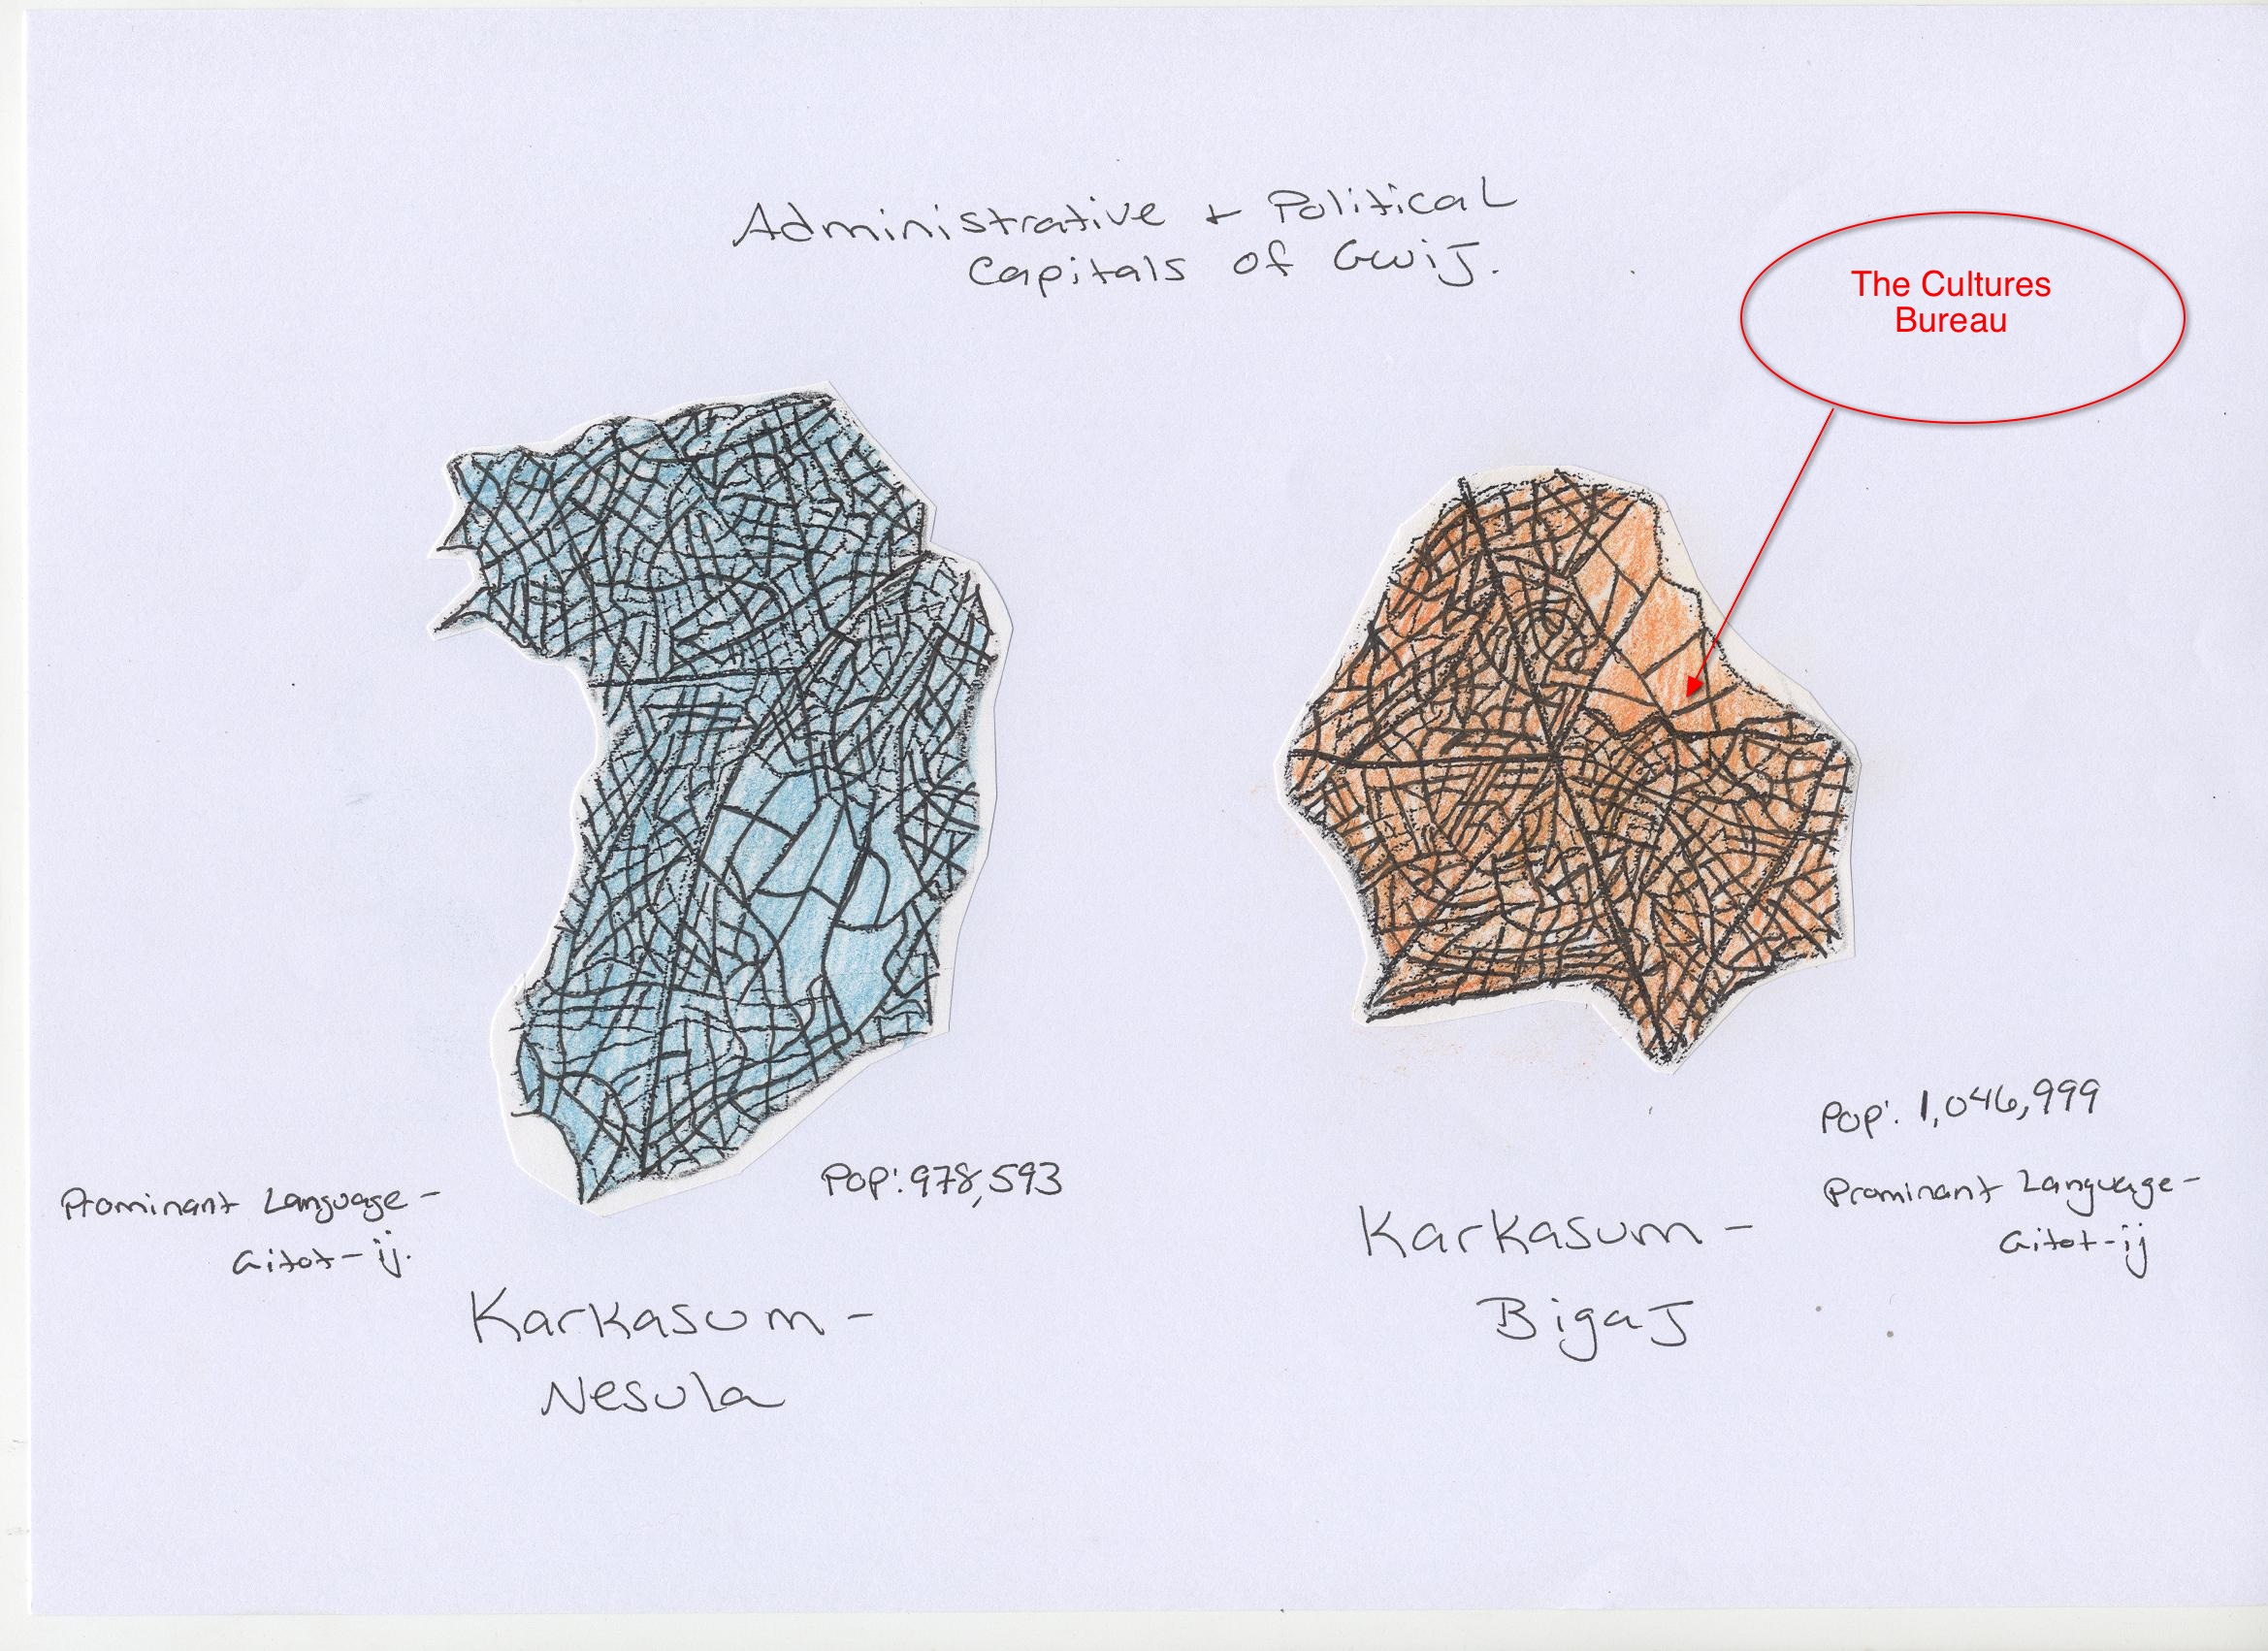 Administrative + Political
Capitals of Gwij.
The Cultures
Bureau
Pop: 978,593
Prominant Language -
Gitot-ij.
Karkasum -
Nesula
Pop: 1,046,999
Prominant Language -
Gitot-ij
Karkasum -
Bigaj